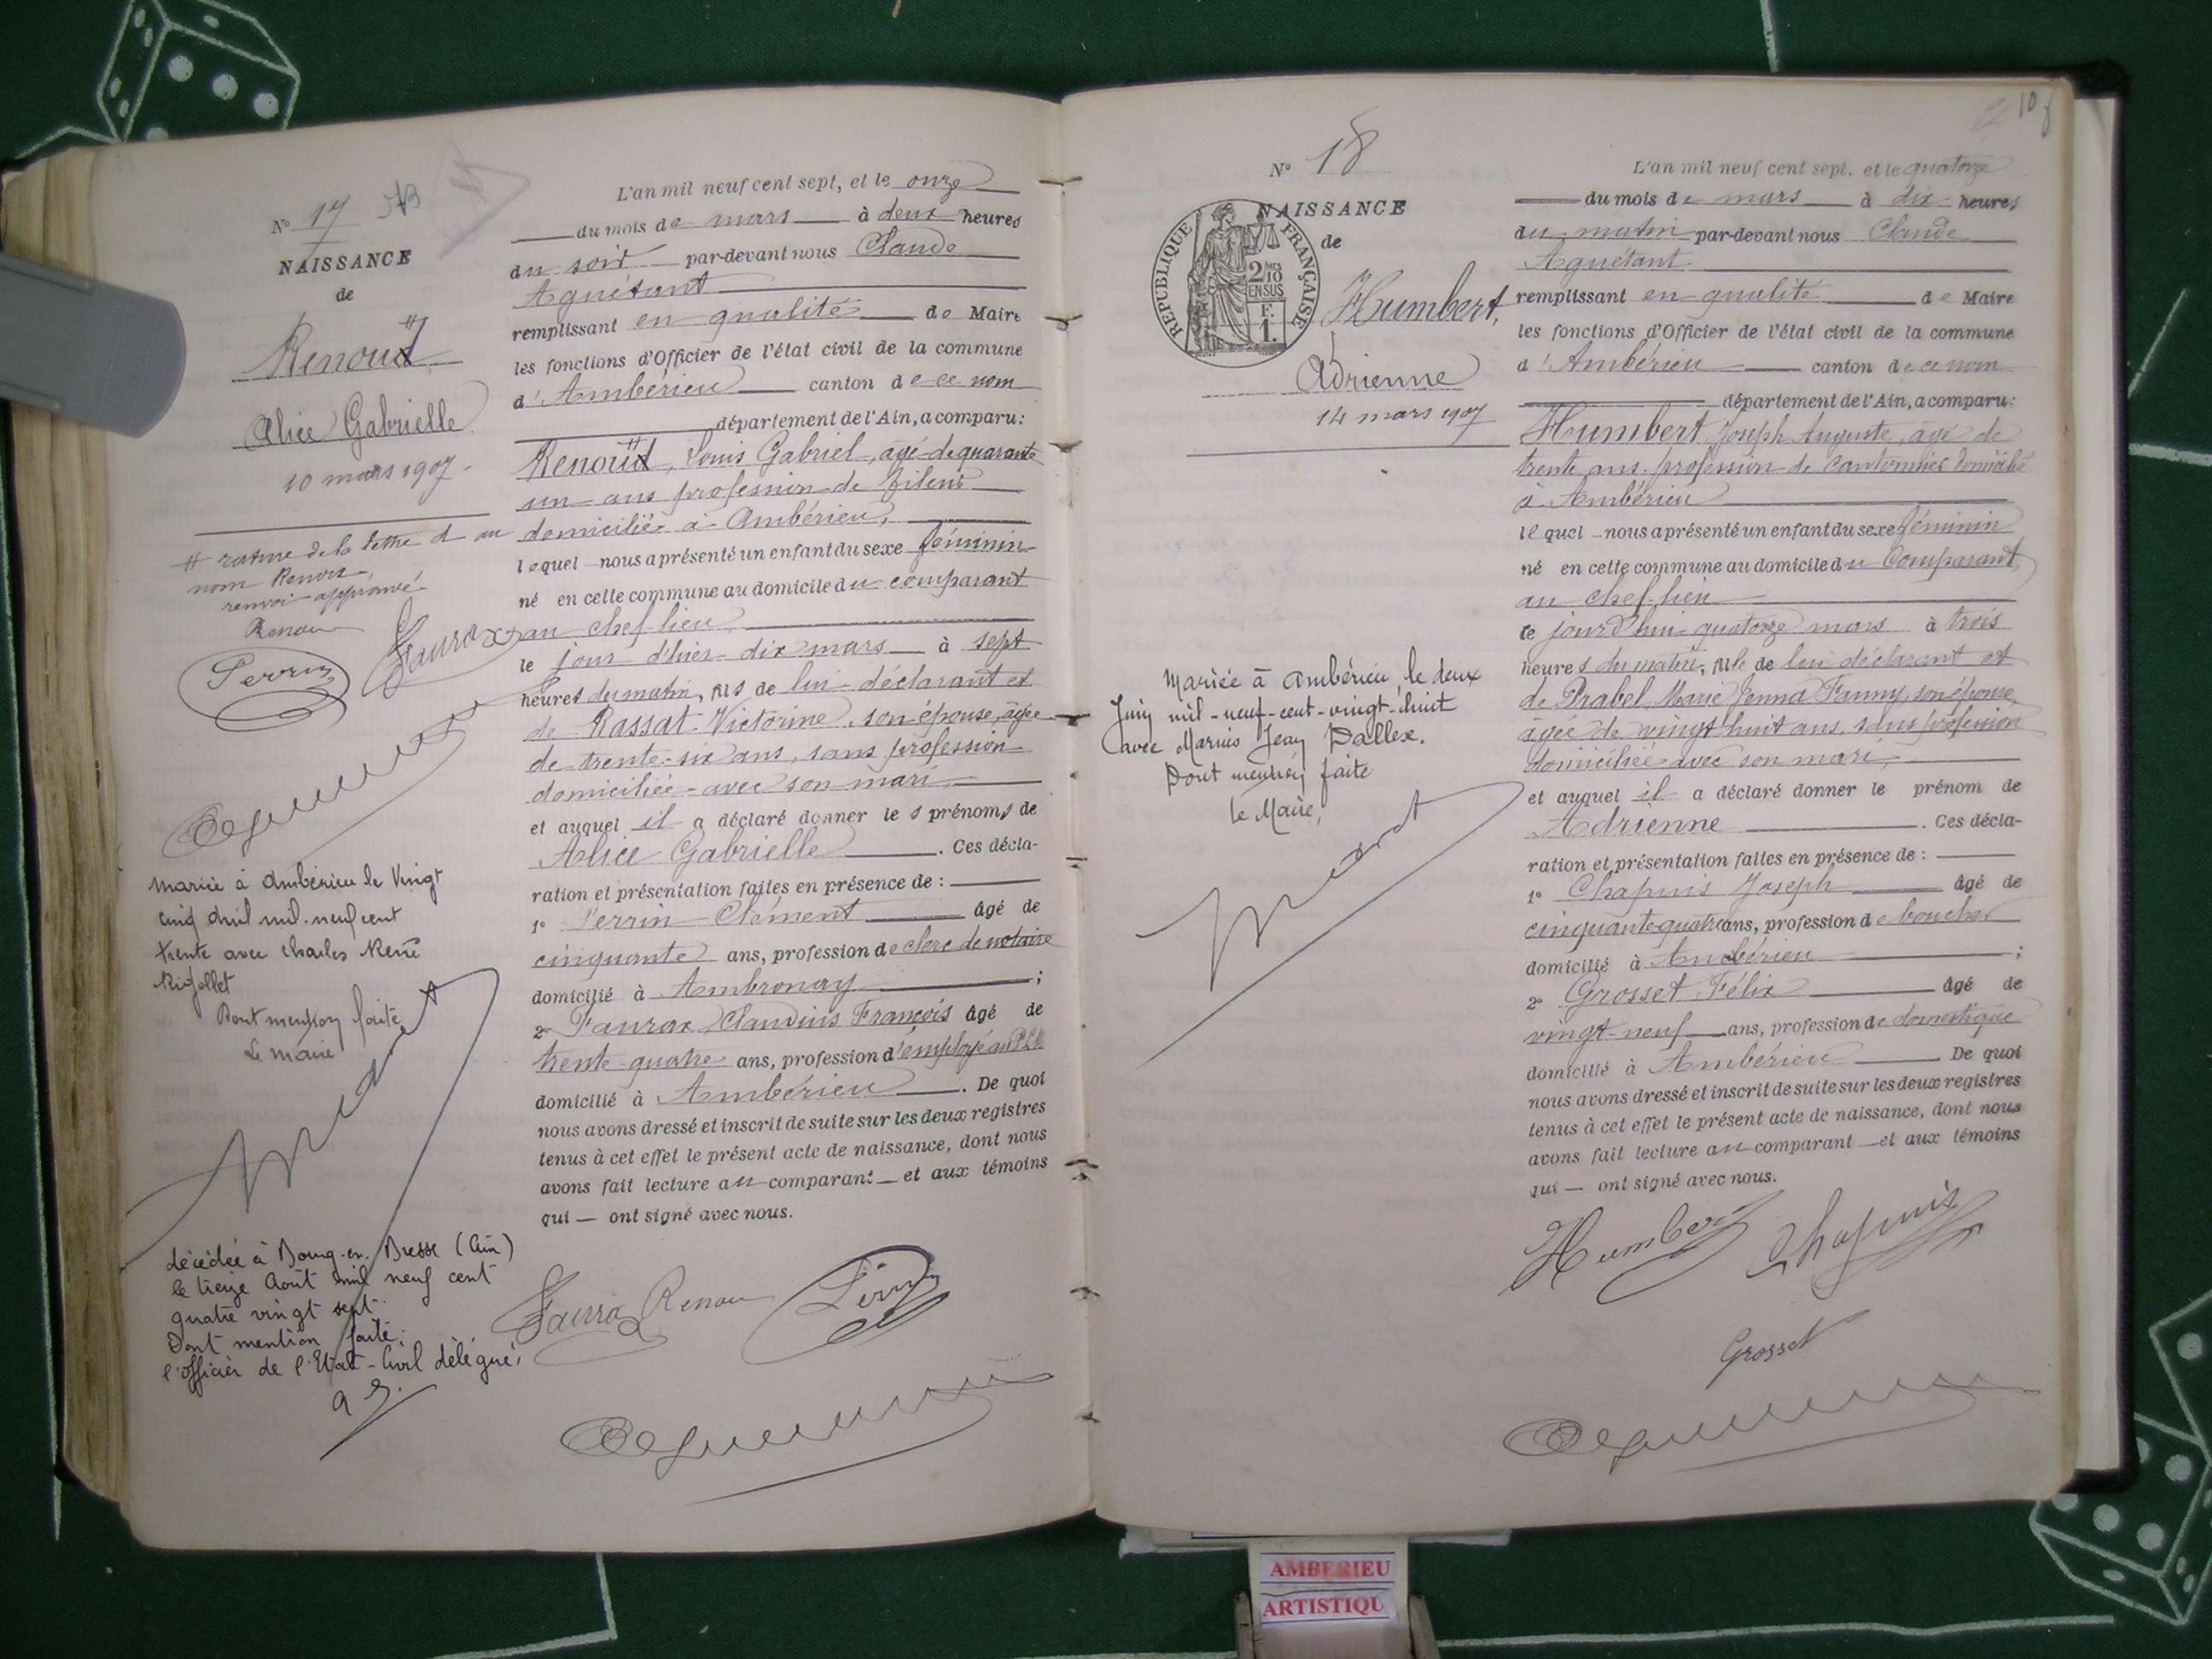 N° 17
NAISSANCE
de
Renoud
Alice Gabrielle
10 mars 1907
# rature de la lettre d au
nom Renou
renvoi approuvé
Renou
Perrin
Faurax
mariée à Ambérieu le Vingt
cinq avril mil-neuf cent
trente avec Charles René
Rigollet
Dont mention faite
Le maire
décédée à Bourg-en-Bresse (Ain)
le treize Août mil neuf cent
quatre vingt sept.
Dont mention faite,
l'officier de l'Etat-Civil délégué,
L'an mil neuf cent sept, et le onze
du mois de mars à deux heures
du soir par-devant nous Claude
Aguétant
remplissant en qualité de Maire
les fonctions d'Officier de l'état civil de la commune
d'Ambérieu canton de ce nom
département de l'Ain, a comparu:
Renoud, Louis Gabriel, âgé de quarante
un ans profession de
domicilié à Ambérieu,
lequel nous a présenté un enfant du sexe féminin
né en cette commune au domicile du comparant
au chef lieu
le jour d'hier dix mars à sept
heures du matin, fils de lui déclarant et
de Rassat Victorine, son épouse, âgée
de trente-six ans, sans profession
domiciliée avec son mari
et auquel il a déclaré donner les prénoms de
Alice Gabrielle. Ces décla-
ration et présentation faites en présence de :
1° Perrin Clément âgé de
cinquante ans, profession de clerc de notaire
domicilié à Ambronay ;
2° Faurax Claudius François âgé de
trente-quatre ans, profession d'employé au PLM
domicilié à Ambérieu. De quoi
nous avons dressé et inscrit de suite sur les deux registres
tenus à cet effet le présent acte de naissance, dont nous
avons fait lecture au comparant et aux témoins
qui — ont signé avec nous.
Faurax Renou Perrin
10
N° 18
NAISSANCE
de
REPUBLIQUE FRANÇAISE
2/10 EN SUS
F. 1.
Humbert,
Adrienne
14 mars 1907
Mariée à Ambérieu, le deux
Juin mil-neuf-cent-vingt-huit
avec Marius Jean Dallex.
Dont mention faite
le Maire,
L'an mil neuf cent sept, et le quatorze
du mois de mars à dix heures
du matin par-devant nous Claude
Aguétant
remplissant en qualité de Maire
les fonctions d'Officier de l'état civil de la commune
d'Ambérieu canton de ce nom
département de l'Ain, a comparu:
Humbert Joseph Auguste, âgé de
trente ans, profession de cantonnier domicilié
à Ambérieu
lequel nous a présenté un enfant du sexe féminin
né en cette commune au domicile du Comparant,
au chef-lieu
le jourd'hui quatorze mars à trois
heures du matin, fille de lui déclarant et
de Marie Fanny, son épouse,
âgée de vingt huit ans, sans profession
domiciliée avec son mari,
et auquel il a déclaré donner le prénom de
Adrienne. Ces décla-
ration et présentation faites en présence de :
1° Chapuis Joseph âgé de
cinquante-quatre ans, profession de boucher
domicilié à Ambérieu ;
2° Grosset Félix âgé de
vingt-neuf ans, profession de domestique
domicilié à Ambérieu De quoi
nous avons dressé et inscrit de suite sur les deux registres
tenus à cet effet le présent acte de naissance, dont nous
avons fait lecture au comparant et aux témoins
qui — ont signé avec nous.
Humbert Chapuis
Grosset
AMBERIEU
ARTISTIQU